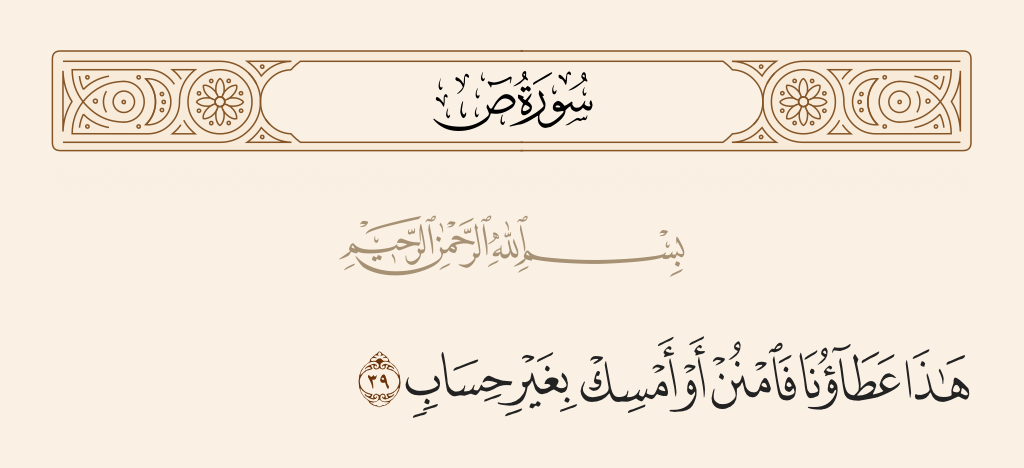 سُورَةُ صٓ
بِسْمِ ٱللَّهِ ٱلرَّحْمَٰنِ ٱلرَّحِيمِ
هَٰذَا عَطَآؤُنَا فَٱمْنُنْ أَوْ أَمْسِكْ بِغَيْرِ حِسَابٍ ٣٩